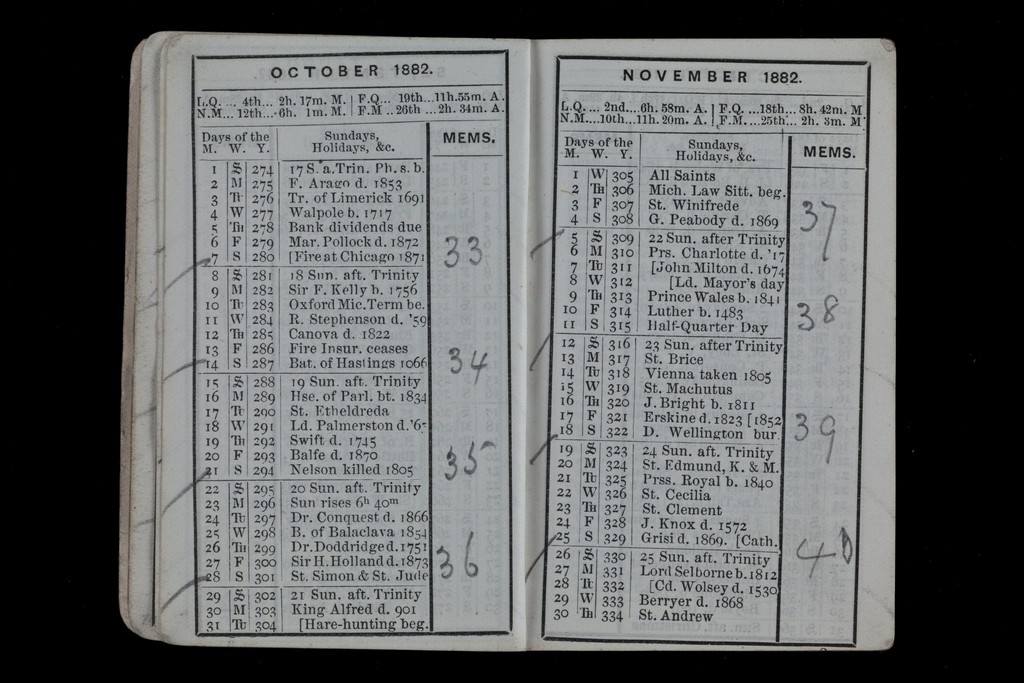 OCTOBER 1882.
L.Q. ... 4th... 2h. 17m. M. | F.Q... 19th...11h.55m. A.
N.M... 12th...6h. 1m. M. | F.M ..26th ...2h. 34m. A.
Days of the Sundays, MEMS.
M. W. Y. Holidays, &c.
1 S 274 17 S. a.Trin. Ph. s. b.
2 M 275 F. Arago d. 1853
3 Tu 276 Tr. of Limerick 1691
4 W 277 Walpole b. 1717
5 Th 278 Bank dividends due
6 F 279 Mar. Pollock d. 1872 33
7 S 280 [Fire at Chicago 1871
8 S 281 18 Sun. aft. Trinity
9 M 282 Sir F. Kelly b. 1756
10 Tu 283 Oxford Mic. Term be.
11 W 284 R. Stephenson d. '59
12 Th 285 Canova d. 1822
13 F 286 Fire Insur. ceases
14 S 287 Bat. of Hastings 1066 34
15 S 288 19 Sun. aft. Trinity
16 M 289 Hse. of Parl. bt. 1834
17 Tu 290 St. Etheldreda
18 W 291 Ld. Palmerston d.
19 Th 292 Swift d. 1745
20 F 293 Balfe d. 1870
21 S 294 Nelson killed 1805 35
22 S 295 20 Sun. aft. Trinity
23 M 296 Sun rises 6h 40m
24 Tu 297 Dr. Conquest d. 1866
25 W 298 B. of Balaclava 1854
26 Th 299 Dr. Doddridge d. 1751
27 F 300 Sir H. Holland d. 1873 36
28 S 301 St. Simon & St. Jude
29 S 302 21 Sun. aft. Trinity
30 M 303 King Alfred d. 901
31 Tu 304 [Hare-hunting beg.
NOVEMBER 1882.
L.Q.... 2nd...6h. 58m. A. | F.Q. ...18th... 8h. 42m. M
N.M....10th...11h. 20m. A. | F.M....25th... 2h. 3m. M
Days of the Sundays, MEMS.
M. W. Y. Holidays, &c.
1 W 305 All Saints
2 Th 306 Mich. Law Sitt. beg.
3 F 307 St. Winifrede
4 S 308 G. Peabody d. 1869 37
5 S 309 22 Sun. after Trinity
6 M 310 Prs. Charlotte d. '17
7 Tu 311 [John Milton d. 1674
8 W 312 [Ld. Mayor's day
9 Th 313 Prince Wales b. 1841
10 F 314 Luther b. 1483 38
11 S 315 Half-Quarter Day
12 S 316 23 Sun. after Trinity
13 M 317 St. Brice
14 Tu 318 Vienna taken 1805
15 W 319 St. Machutus
16 Th 320 J. Bright b. 1811
17 F 321 Erskine d. 1823 [1852 39
18 S 322 D. Wellington bur.
19 S 323 24 Sun. aft. Trinity
20 M 324 St. Edmund, K. & M.
21 Tu 325 Prss. Royal b. 1840
22 W 326 St. Cecilia
23 Th 327 St. Clement
24 F 328 J. Knox d. 1572
25 S 329 Grisi d. 1869. [Cath. 40
26 S 330 25 Sun. aft. Trinity
27 M 331 Lord Selborne b. 1812
28 Tu 332 [Cd. Wolsey d. 1530
29 W 333 Berryer d. 1868
30 Th 334 St. Andrew